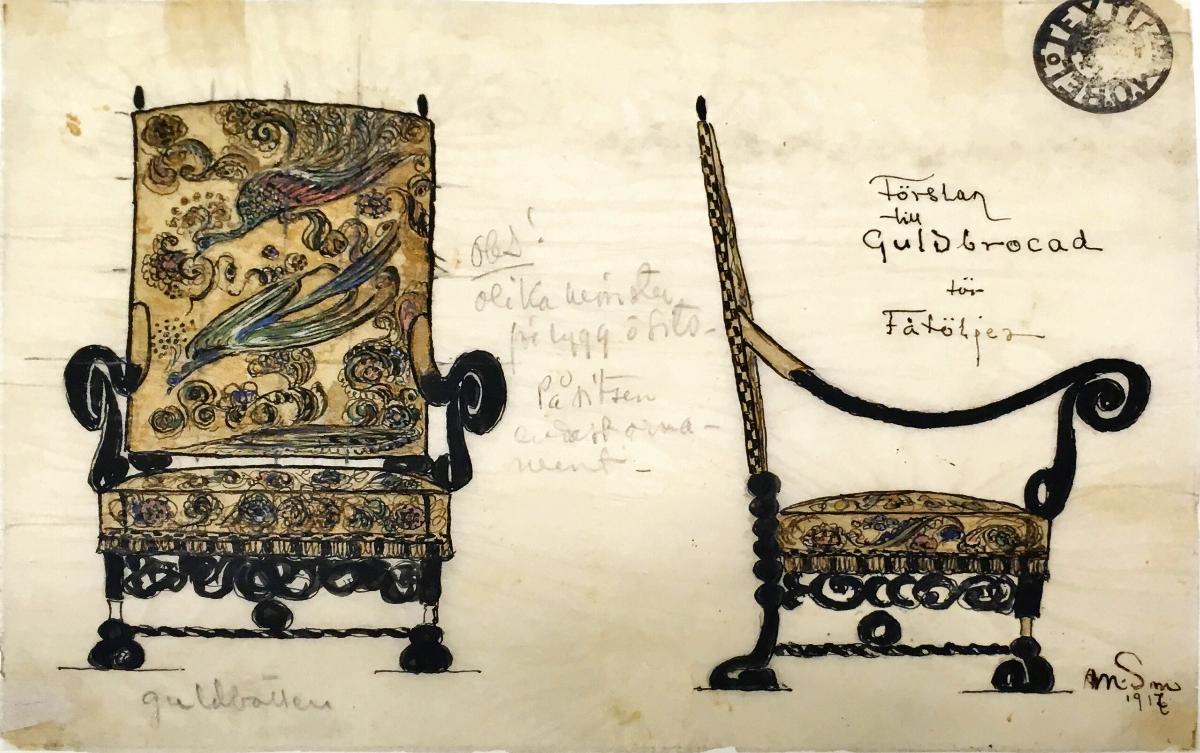 Förslag
till
Guldbrocad
för
Fåtöljer
Obs!
olika mönster
på rygg o sits-
På sitsen
endast orna-
ment-
guldbotten
1917